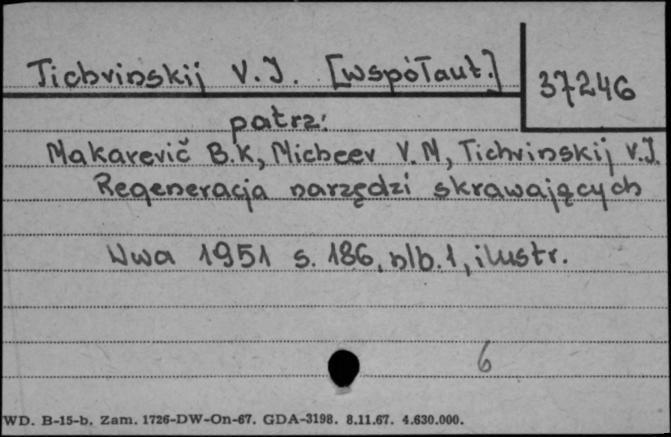 Tichvinskij V.J. [współaut.]
37246
patrz:
Makarevič B.K, Micheev V.M, Tichvinskij V.J.
Regeneracja narzędzi skrawających
Wwa 1951 s. 186, nlb. 1, ilustr.
6
WD. B-15-b. Zam. 1726-DW-On-67. GDA-3198. 8.11.67. 4.630.000.